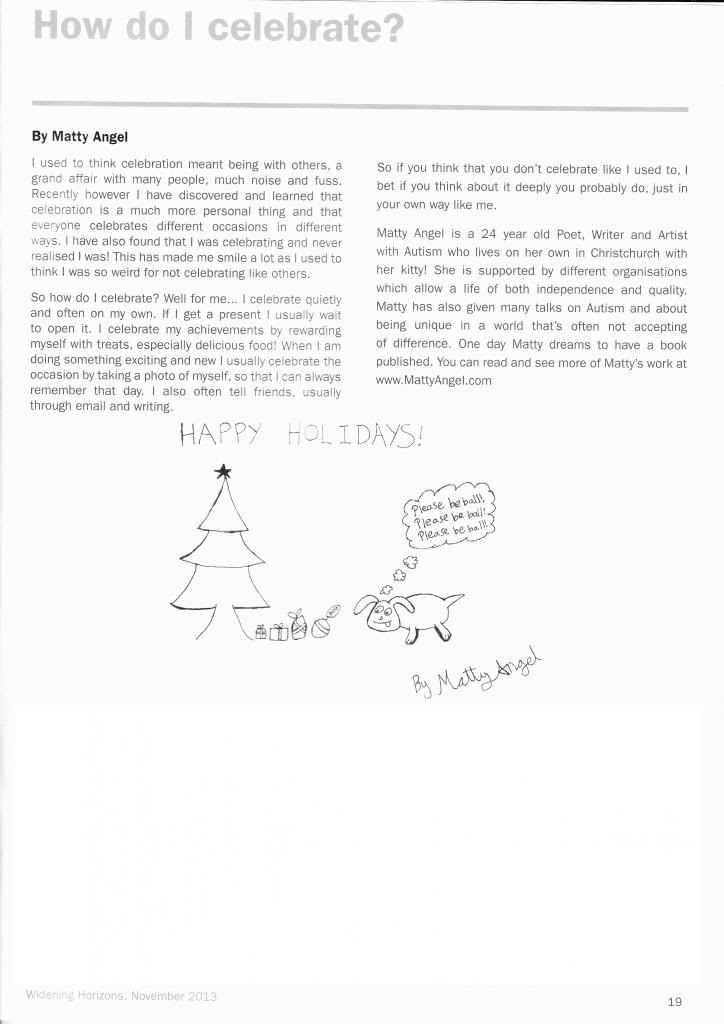 How do I celebrate?
By Matty Angel
I used to think celebration meant being with others, a
grand affair with many people, much noise and fuss.
Recently however I have discovered and learned that
celebration is a much more personal thing and that
everyone celebrates different occasions in different
ways. I have also found that I was celebrating and never
realised I was! This has made me smile a lot as I used to
think I was so weird for not celebrating like others.
So how do I celebrate? Well for me... I celebrate quietly
and often on my own. If I get a present I usually wait
to open it. I celebrate my achievements by rewarding
myself with treats, especially delicious food! When I am
doing something exciting and new I usually celebrate the
occasion by taking a photo of myself, so that I can always
remember that day. I also often tell friends, usually
through email and writing.
So if you think that you don't celebrate like I used to, I
bet if you think about it deeply you probably do, just in
your own way like me.
Matty Angel is a 24 year old Poet, Writer and Artist
with Autism who lives on her own in Christchurch with
her kitty! She is supported by different organisations
which allow a life of both independence and quality.
Matty has also given many talks on Autism and about
being unique in a world that's often not accepting
of difference. One day Matty dreams to have a book
published. You can read and see more of Matty's work at
www.MattyAngel.com
HAPPY HOLIDAYS!
Please be ball!
Please be ball!
Please be ball!
By Matty Angel
Widening Horizons, November 2013
19